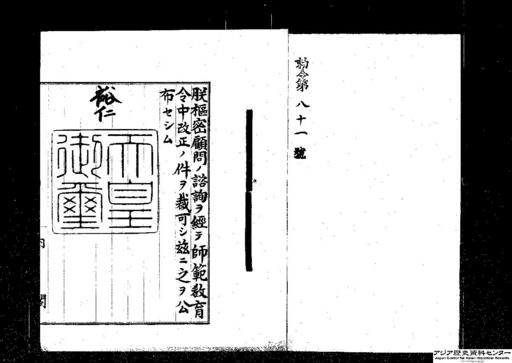 勅令第八十一號
朕樞密顧問ノ諮詢ヲ經テ師範教育
令中改正ノ件ヲ裁可シ茲ニ之ヲ公
布セシム
裕仁
天皇
御璽
内閣
アジア歴史資料センター
Japan Center for Asian Historical Records